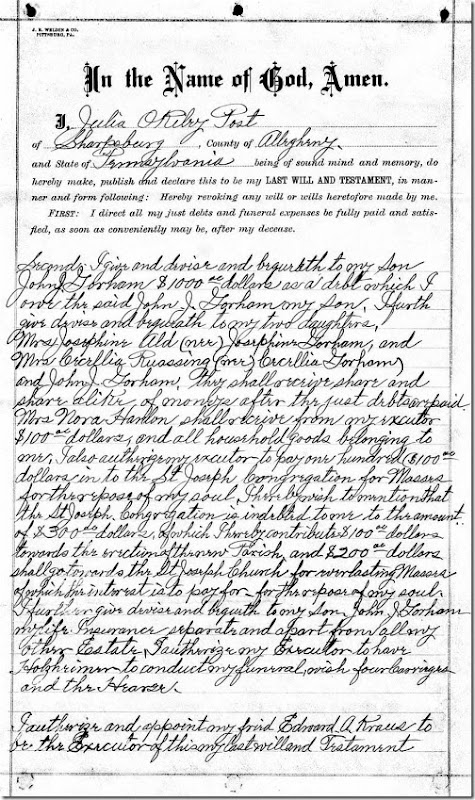 J. R. WELDIN & CO.
PITTSBURG, PA.
In the Name of God, Amen.
I, Julia O'Riley Post
of Sharpsburg, County of Allegheny
and State of Pennsylvania being of sound mind and memory, do
hereby make, publish and declare this to be my LAST WILL AND TESTAMENT, in man-
ner and form following: Hereby revoking any will or wills heretofore made by me.
FIRST: I direct all my just debts and funeral expenses be fully paid and satis-
fied, as soon as conveniently may be, after my decease.
Second; I give and devise and bequeath to my son
John J Gorham $1000 00 dollars as a debt which I
owe the said John J. Gorham my son, I furth
give devise and bequeath to my two daughters,
Mrs Josephine Ald (nee) Josephine Gorham, and
Mrs Cecellia Ruassing (nee) Cecellia Gorham
and John J Gorham. They shall receive share and
share alike, of moneys after the just debts are paid
Mrs Nora Hanlon shall receive from my excutor
$100 00 dollars, and all household goods belonging to
me, I also autherize my excutor to pay one hundred ($100 00
dollars in to the St Joseph Congregation for Masses
for the repose of my soul, I hereby wish to mention that
the St Joseph, Congregation is indebted to me to the amount
of $300 00 dollars, of which I hereby contribute $100 00 dollars
towards the erection of the new Parish, and $200 00 dollars
shall go towards the St Joseph Church for everlasting Masses
of which the interest is to pay for - for the repose of my soul.
I further give devise and bequith to my son John J Gorham
my life Insurance separate and apart from all my
other Estate, I autherize my Executor to have
Holzheimer to conduct my funeral, wish four Carriages
and the Hearse.
I autherize and appoint my frind Edward A Kraus to
be the Executor of this my last will and Testament